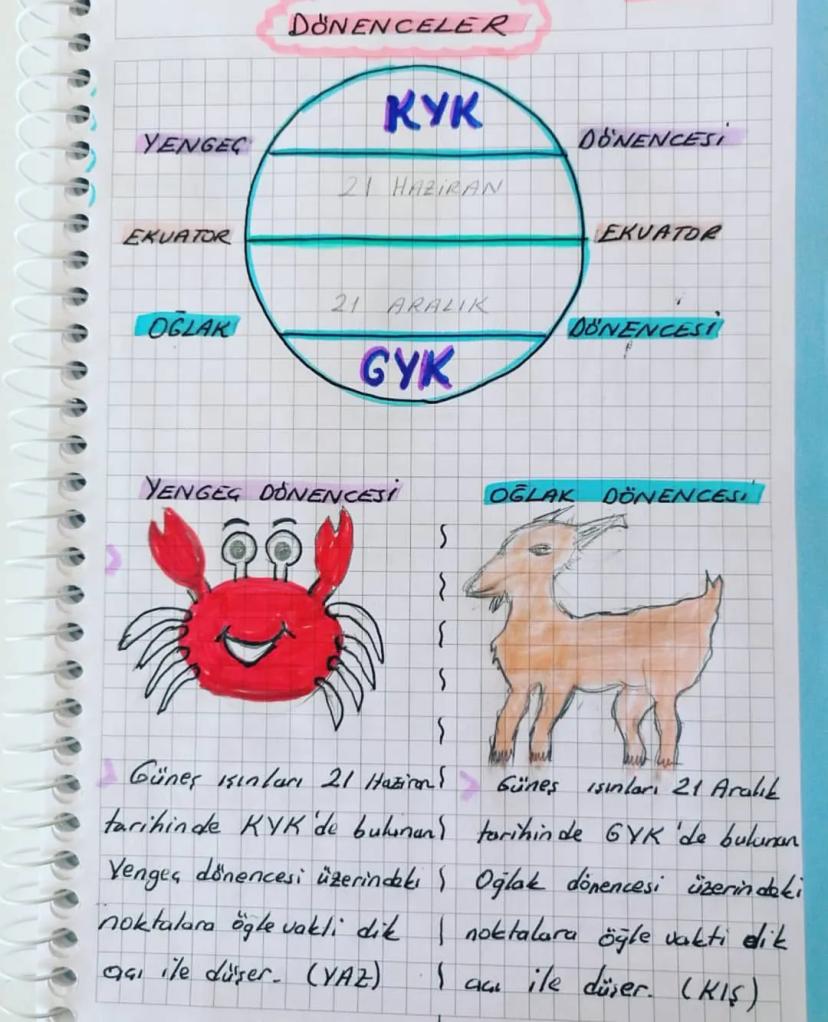 DÖNENCELER
KYK
YENGEÇ DÖNENCESİ
21 HAZİRAN
EKUATOR EKUATOR
21 ARALIK
OĞLAK DÖNENCESİ
GYK
YENGEÇ DÖNENCESİ
Güneş ışınları 21 Haziran
tarihinde KYK'de bulunan
Yengeç dönencesi üzerindeki
noktalara öğle vakti dik
açı ile düşer. (YAZ)
OĞLAK DÖNENCESİ
Güneş ışınları 21 Aralık
tarihinde GYK'de bulunan
Oğlak dönencesi üzerindeki
noktalara öğle vakti dik
açı ile düşer. (KIŞ)